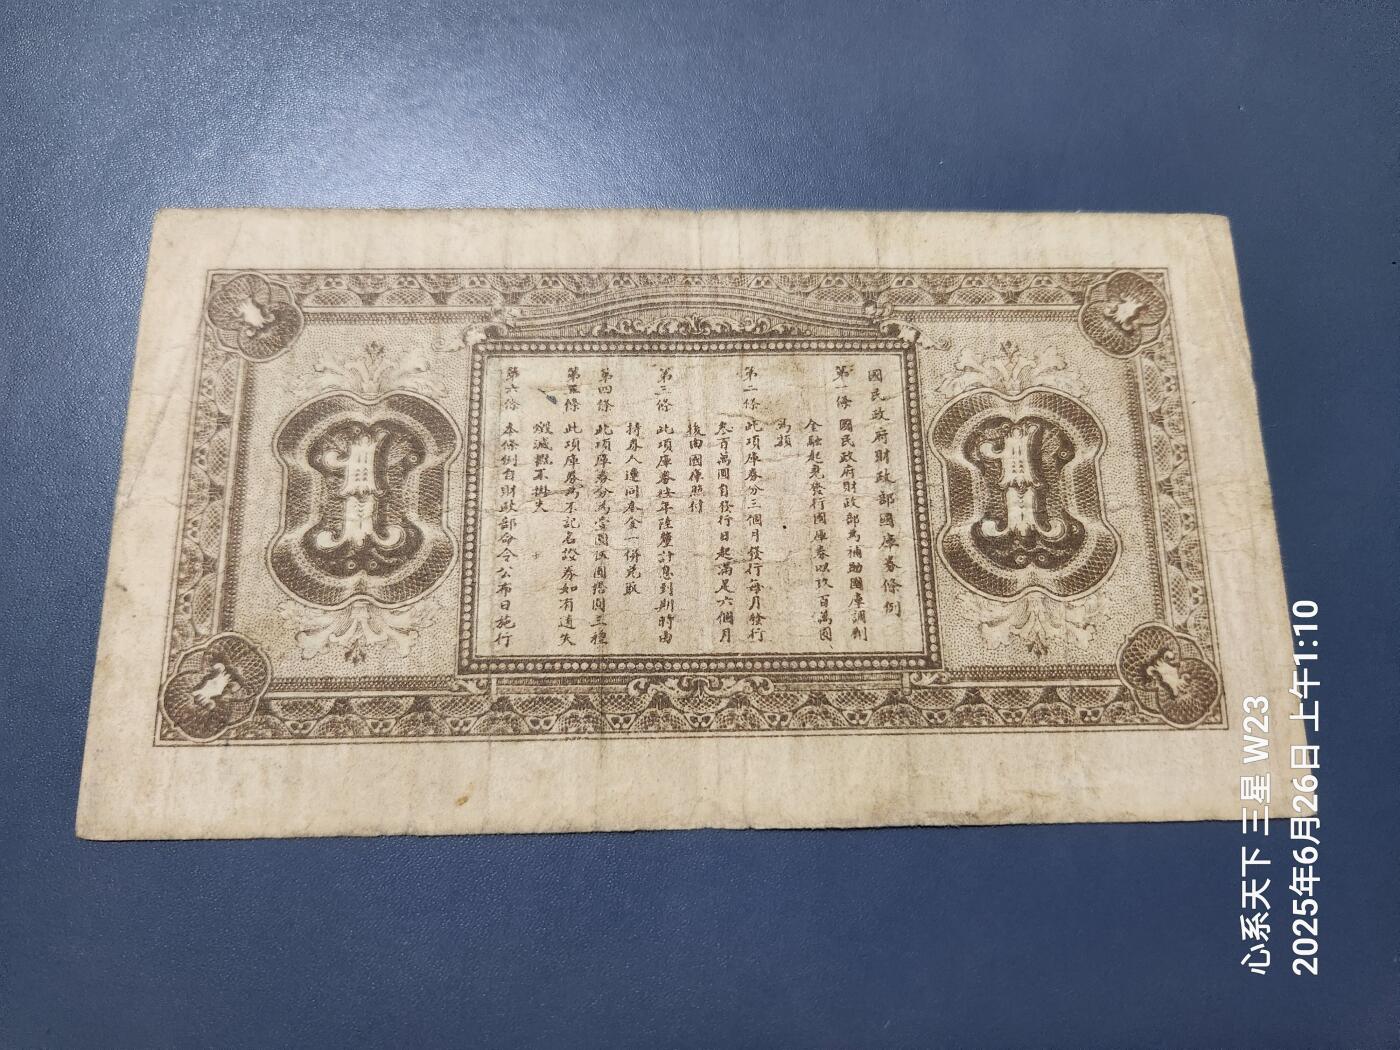 國民政府財政部國庫券條例
第一條 國民政府財政部為補助國庫調劑
金融起見發行國庫券以玖百萬圓
為額
第二條 此項庫券分三個月發行每月發行
叁百萬圓自發行日起滿足六個月
後由國庫照付
第三條 此項庫券按年陸釐計息到期時由
持券人連同本金一併兌取
第四條 此項庫券分為壹圓伍圓拾圓三種
第五條 此項庫券為不記名證券如有遺失
燬滅概不掛失
第六條 本條例自財政部命令公布日施行
1
1
心系天下 三星 W23
2025年6月26日 上午1:10